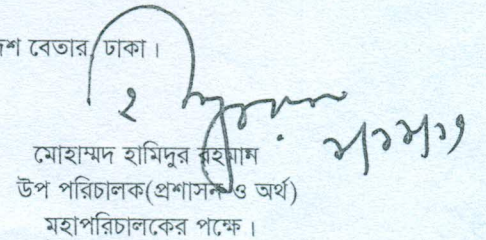 শ বেতার, ঢাকা।
মোহাম্মদ হামিদুর রহমান
উপ পরিচালক(প্রশাসন ও অর্থ)
মহাপরিচালকের পক্ষে।